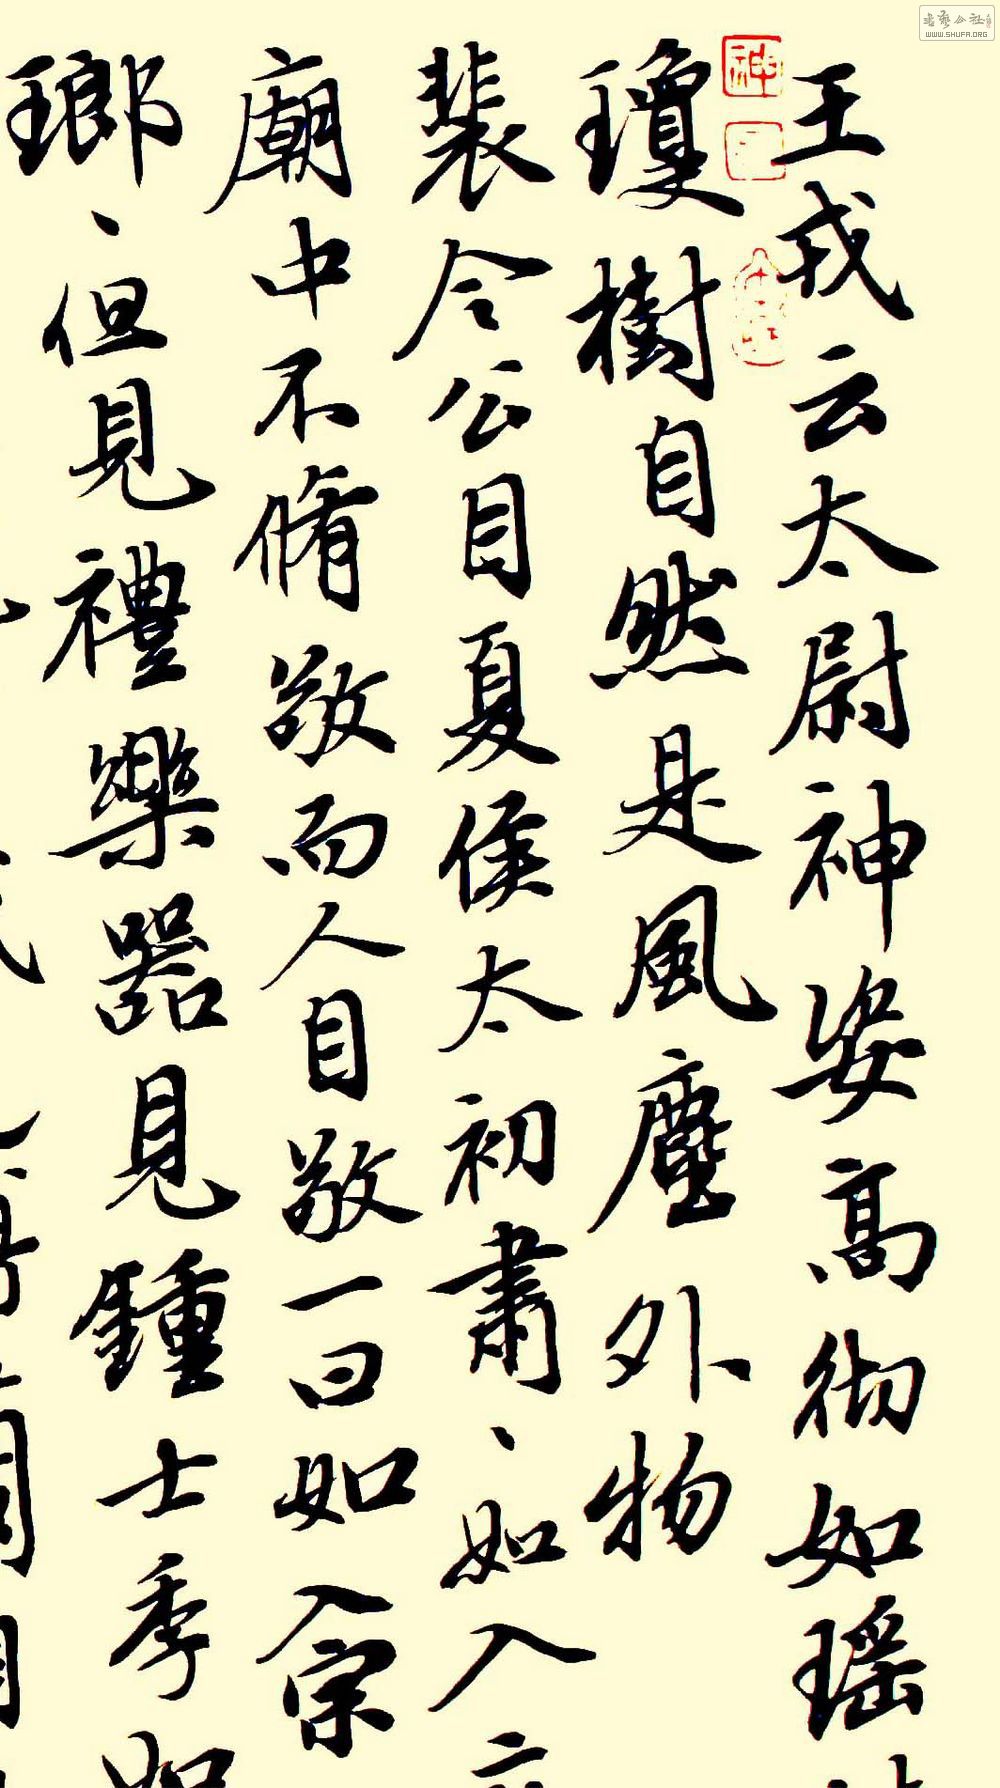 王戎云太尉神姿高彻如瑶
瓊樹自然是風塵外物
裴令公目夏侯太初肅、如入
廟中不脩敬而人自敬一曰如入宗
瑯、但見禮樂器見鍾士季如
WWW.SHUFA.ORG